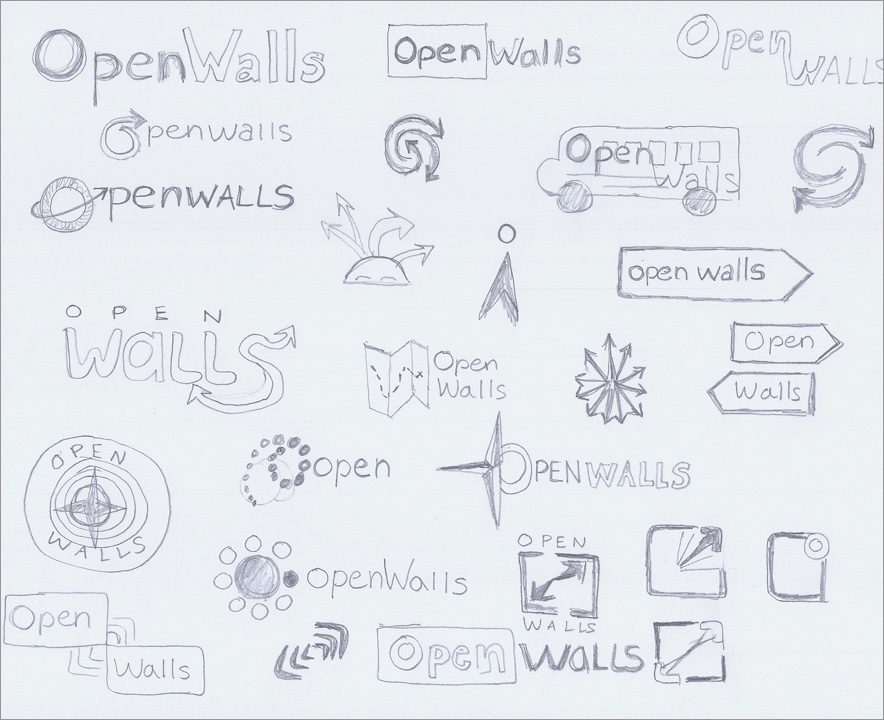 OpenWalls
Open Walls
Open
WALLS
Openwalls
Open
Walls
OpenWALLS
open walls
OPEN
WALLS
Open
Walls
Open
Walls
OPEN
WALLS
open
OPENWALLS
OpenWalls
OPEN
WALLS
Open
Walls
Open WALLS